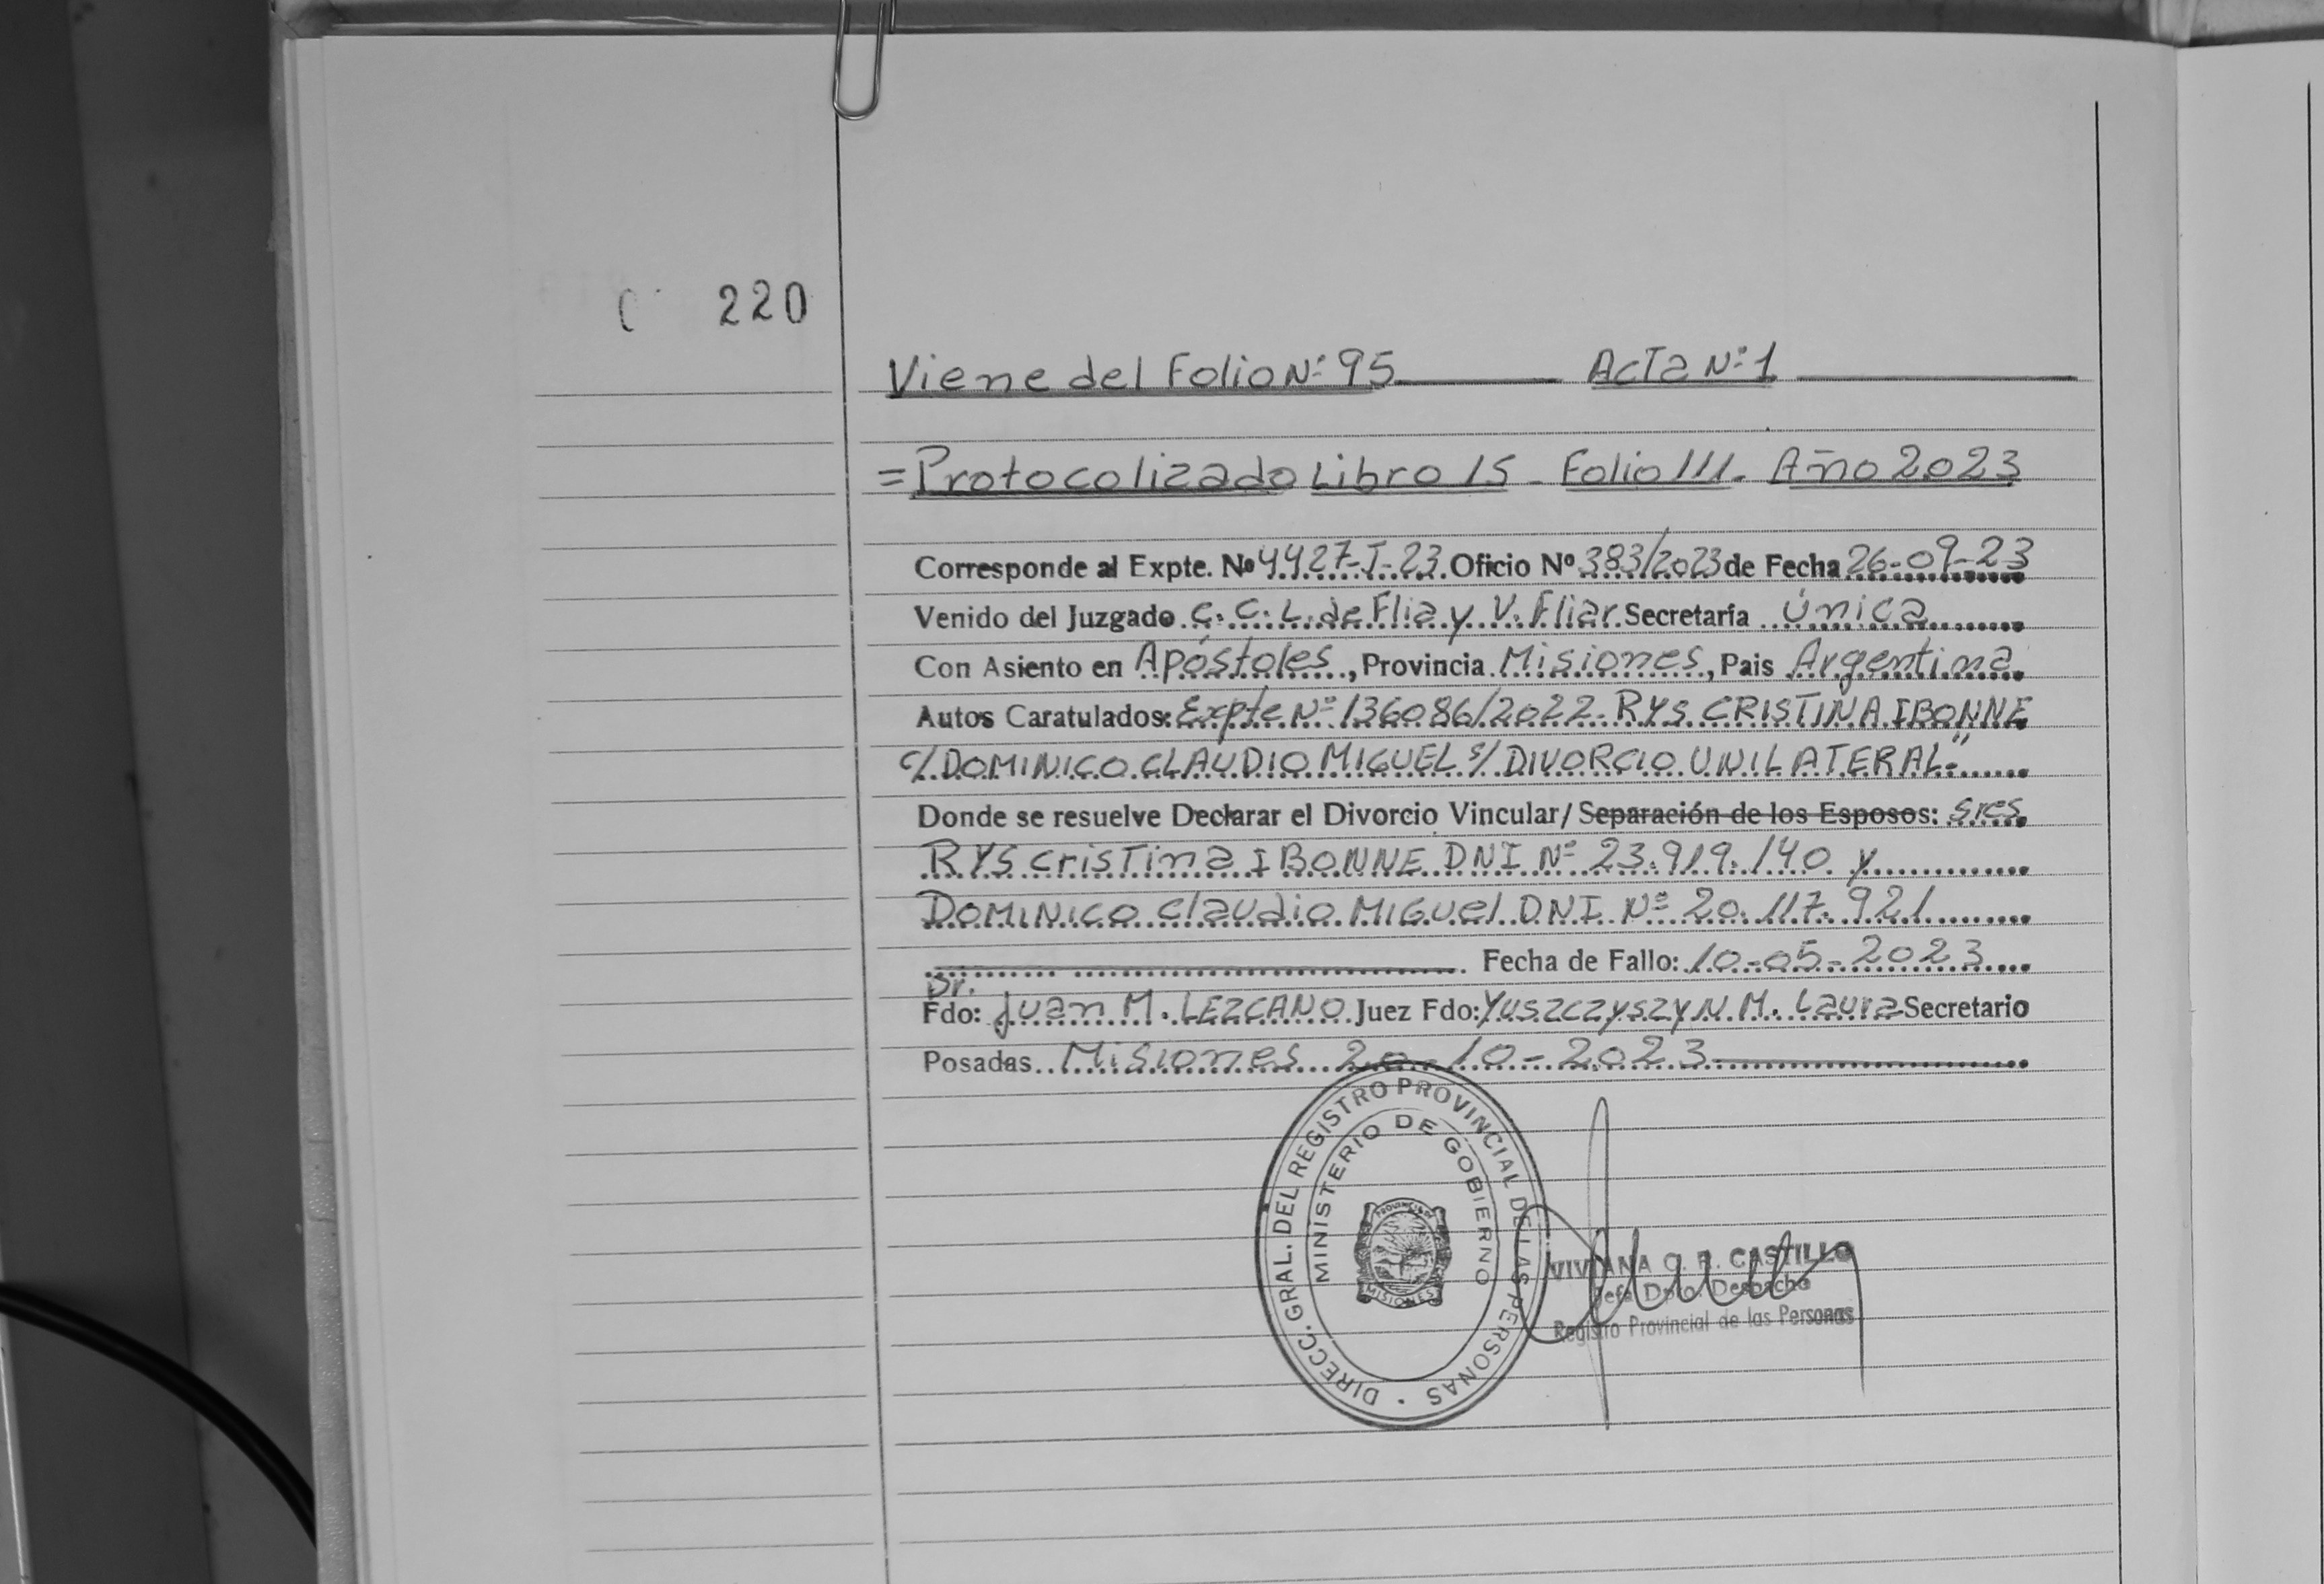 220
Viene del Folio Nº 95 Acta Nº 1
= Protocolizado Libro 15 - Folio 111. Año 2023
Corresponde al Expte. Nº 4427-I-23 Oficio Nº 383/2023 de Fecha 26-09-23
Venido del Juzgado C. C. L. de Flia y V. Fliar Secretaría Única
Con Asiento en Apóstoles, Provincia Misiones, Pais Argentina
Autos Caratulados: Expte Nº 136086/2022. RYS CRISTINA IBONNE
c/ DOMINICO CLAUDIO MIGUEL s/ DIVORCIO UNILATERAL."
Donde se resuelve Declarar el Divorcio Vincular/ Separación de los Esposos: Sres
RYS Cristina IBONNE DNI Nº 23.919.140 y
DOMINICO Claudio MIGUEL D.N.I. Nº 20.117.921
Fecha de Fallo: 10-05-2023
Dr.
Fdo: Juan M. LEZCANO Juez Fdo: YUSZCZYSZYN M. Laura Secretario
Posadas Misiones 20-10-2023
DIRECC. GRAL. DEL REGISTRO PROVINCIAL DE LAS PERSONAS
MINISTERIO DE GOBIERNO
PROVINCIA DE
MISIONES
VIVIANA C. R. CASTILLO
Jefa Dpto. Despacho
Registro Provincial de las Personas